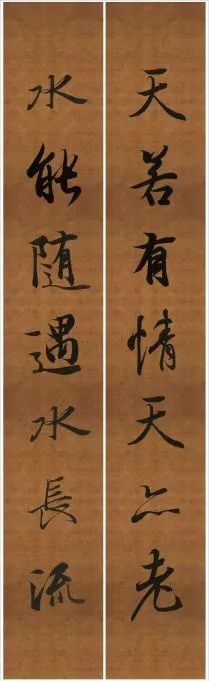 天若有情天亦老
水能随遇水長流